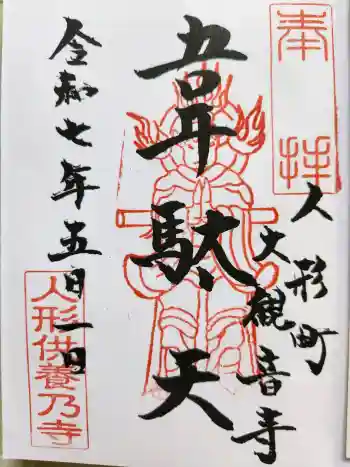 奉拝
人形町
大観音寺
韋駄天
令和七年五月一日
人形供養乃寺